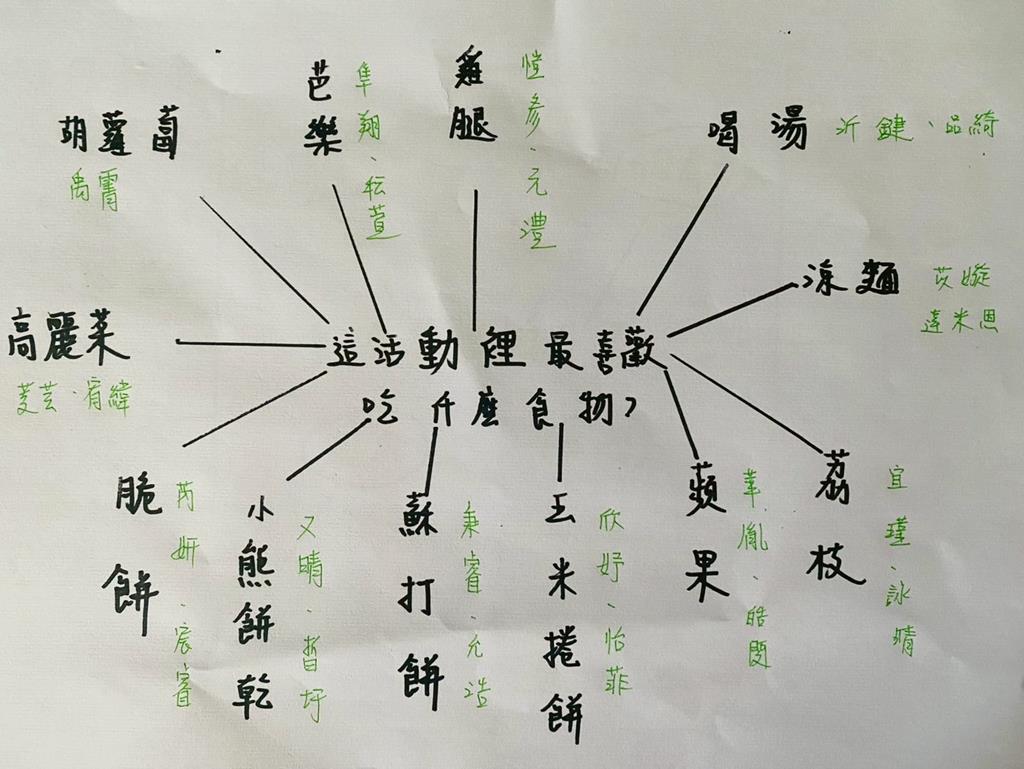 這活動裡最喜歡
吃什麼食物?
胡蘿蔔
禹霄
芭樂
隼翔、秐萱
雞腿
愷彥、元灃
喝湯
沂鍵、品綺
涼麵
苡嫙
達米恩
荔枝
宜瑾、詠晴
蘋果
皓閔
玉米捲餅
欣妤、怡菲
蘇打餅
秉睿、元造
小熊餅乾
又晴、晢圩
脆餅
芮妍、宸睿
高麗菜
菱芸、宥緯